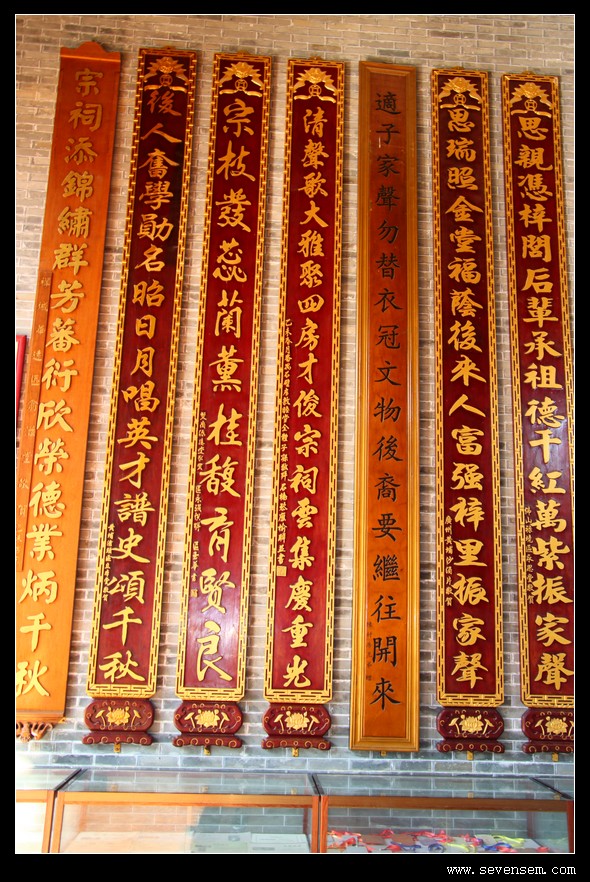 思親憑梓閭后輩承祖德千紅萬紫振家聲
思瑞照金堂福蔭後來人富强梓里振家聲
適子家聲勿替衣冠文物後裔要繼往開來
清聲歌大雅聚四房才俊宗祠雲集慶重光
宗枝發蕊蘭薰桂馥育賢良
後人奮學勛名昭日月唱英才譜史頌千秋
宗祠添錦繡群芳蕃衍欣榮德業炳千秋
www.sevensem.com